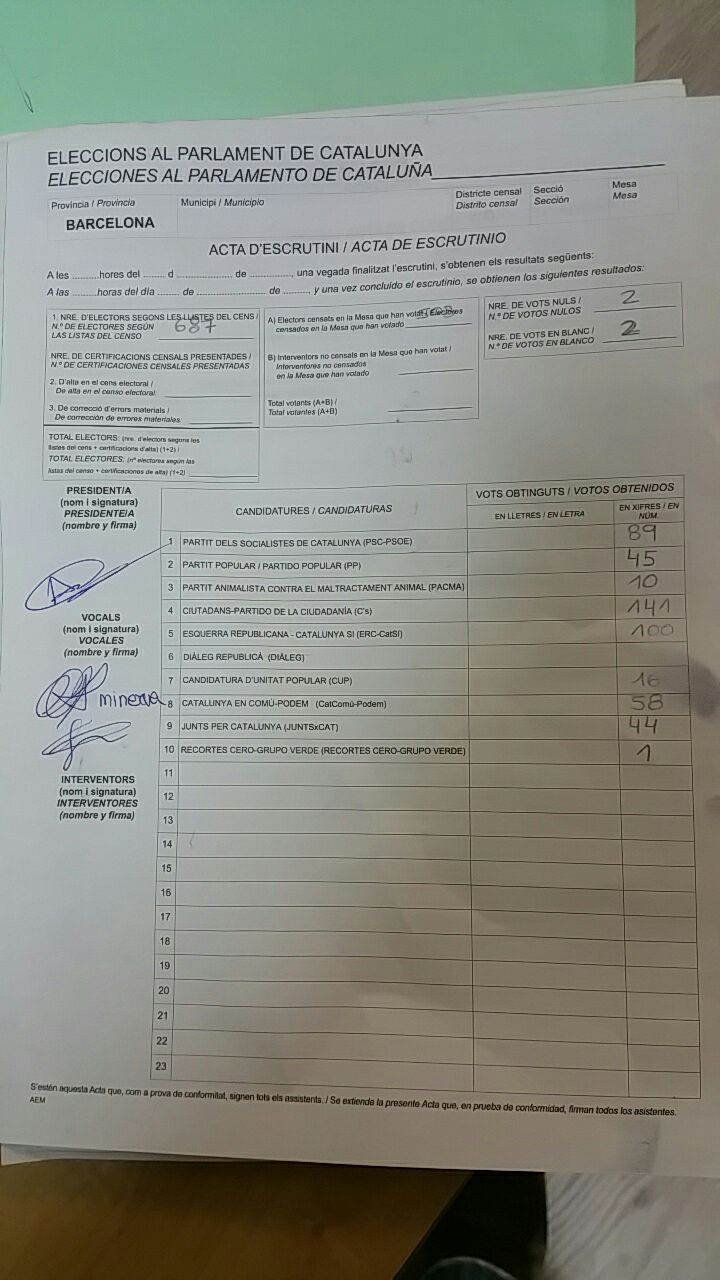 ELECCIONS AL PARLAMENT DE CATALUNYA
ELECCIONES AL PARLAMENTO DE CATALUÑA
Província / Provincia
BARCELONA
Municipi / Municipio
Districte censal
Distrito censal
Secció
Sección
Mesa
Mesa
ACTA D'ESCRUTINI / ACTA DE ESCRUTINIO
A les ..........hores del ........ d .................... de ..............., una vegada finalitzat l'escrutini, s'obtenen els resultats següents:
A las ..........horas del día ....... de ........................... de ........., y una vez concluido el escrutinio, se obtienen los siguientes resultados:
1. NRE. D'ELECTORS SEGONS LES LLISTES DEL CENS /
N.º DE ELECTORES SEGÚN
LAS LISTAS DEL CENSO
687
NRE. DE CERTIFICACIONS CENSALS PRESENTADES /
N.º DE CERTIFICACIONES CENSALES PRESENTADAS
2. D'alta en el cens electoral /
De alta en el censo electoral:
3. De correcció d'errors materials /
De corrección de errores materiales:
TOTAL ELECTORS: (nre. d'electors segons les
llistes del cens + certificacions d'alta) (1+2) /
TOTAL ELECTORES: (nº electores según las
listas del censo + certificaciones de alta) (1+2)
A) Electors censats en la Mesa que han votat / Electores
censados en la Mesa que han votado
B) Interventors no censats en la Mesa que han votat /
Interventores no censados
en la Mesa que han votado
Total votants (A+B) /
Total votantes (A+B)
NRE. DE VOTS NULS /
N.º DE VOTOS NULOS
2
NRE. DE VOTS EN BLANC /
N.º DE VOTOS EN BLANCO
2
PRESIDENT/A
(nom i signatura)
PRESIDENTE/A
(nombre y firma)
VOCALS
(nom i signatura)
VOCALES
(nombre y firma)
minerva
INTERVENTORS
(nom i signatura)
INTERVENTORES
(nombre y firma)
CANDIDATURES / CANDIDATURAS
VOTS OBTINGUTS / VOTOS OBTENIDOS
EN LLETRES / EN LETRA
EN XIFRES / EN NÚM.
1 PARTIT DELS SOCIALISTES DE CATALUNYA (PSC-PSOE) 89
2 PARTIT POPULAR / PARTIDO POPULAR (PP) 45
3 PARTIT ANIMALISTA CONTRA EL MALTRACTAMENT ANIMAL (PACMA) 10
4 CIUTADANS-PARTIDO DE LA CIUDADANÍA (C's) 141
5 ESQUERRA REPUBLICANA - CATALUNYA SÍ (ERC-CatSÍ) 100
6 DIÀLEG REPUBLICÀ (DIÀLEG)
7 CANDIDATURA D'UNITAT POPULAR (CUP) 16
8 CATALUNYA EN COMÚ-PODEM (CatComú-Podem) 58
9 JUNTS PER CATALUNYA (JUNTSxCAT) 44
10 RECORTES CERO-GRUPO VERDE (RECORTES CERO-GRUPO VERDE) 1
11
12
13
14
15
16
17
18
19
20
21
22
23
S'estén aquesta Acta que, com a prova de conformitat, signen tots els assistents. / Se extiende la presente Acta que, en prueba de conformidad, firman todos los asistentes.
AEM